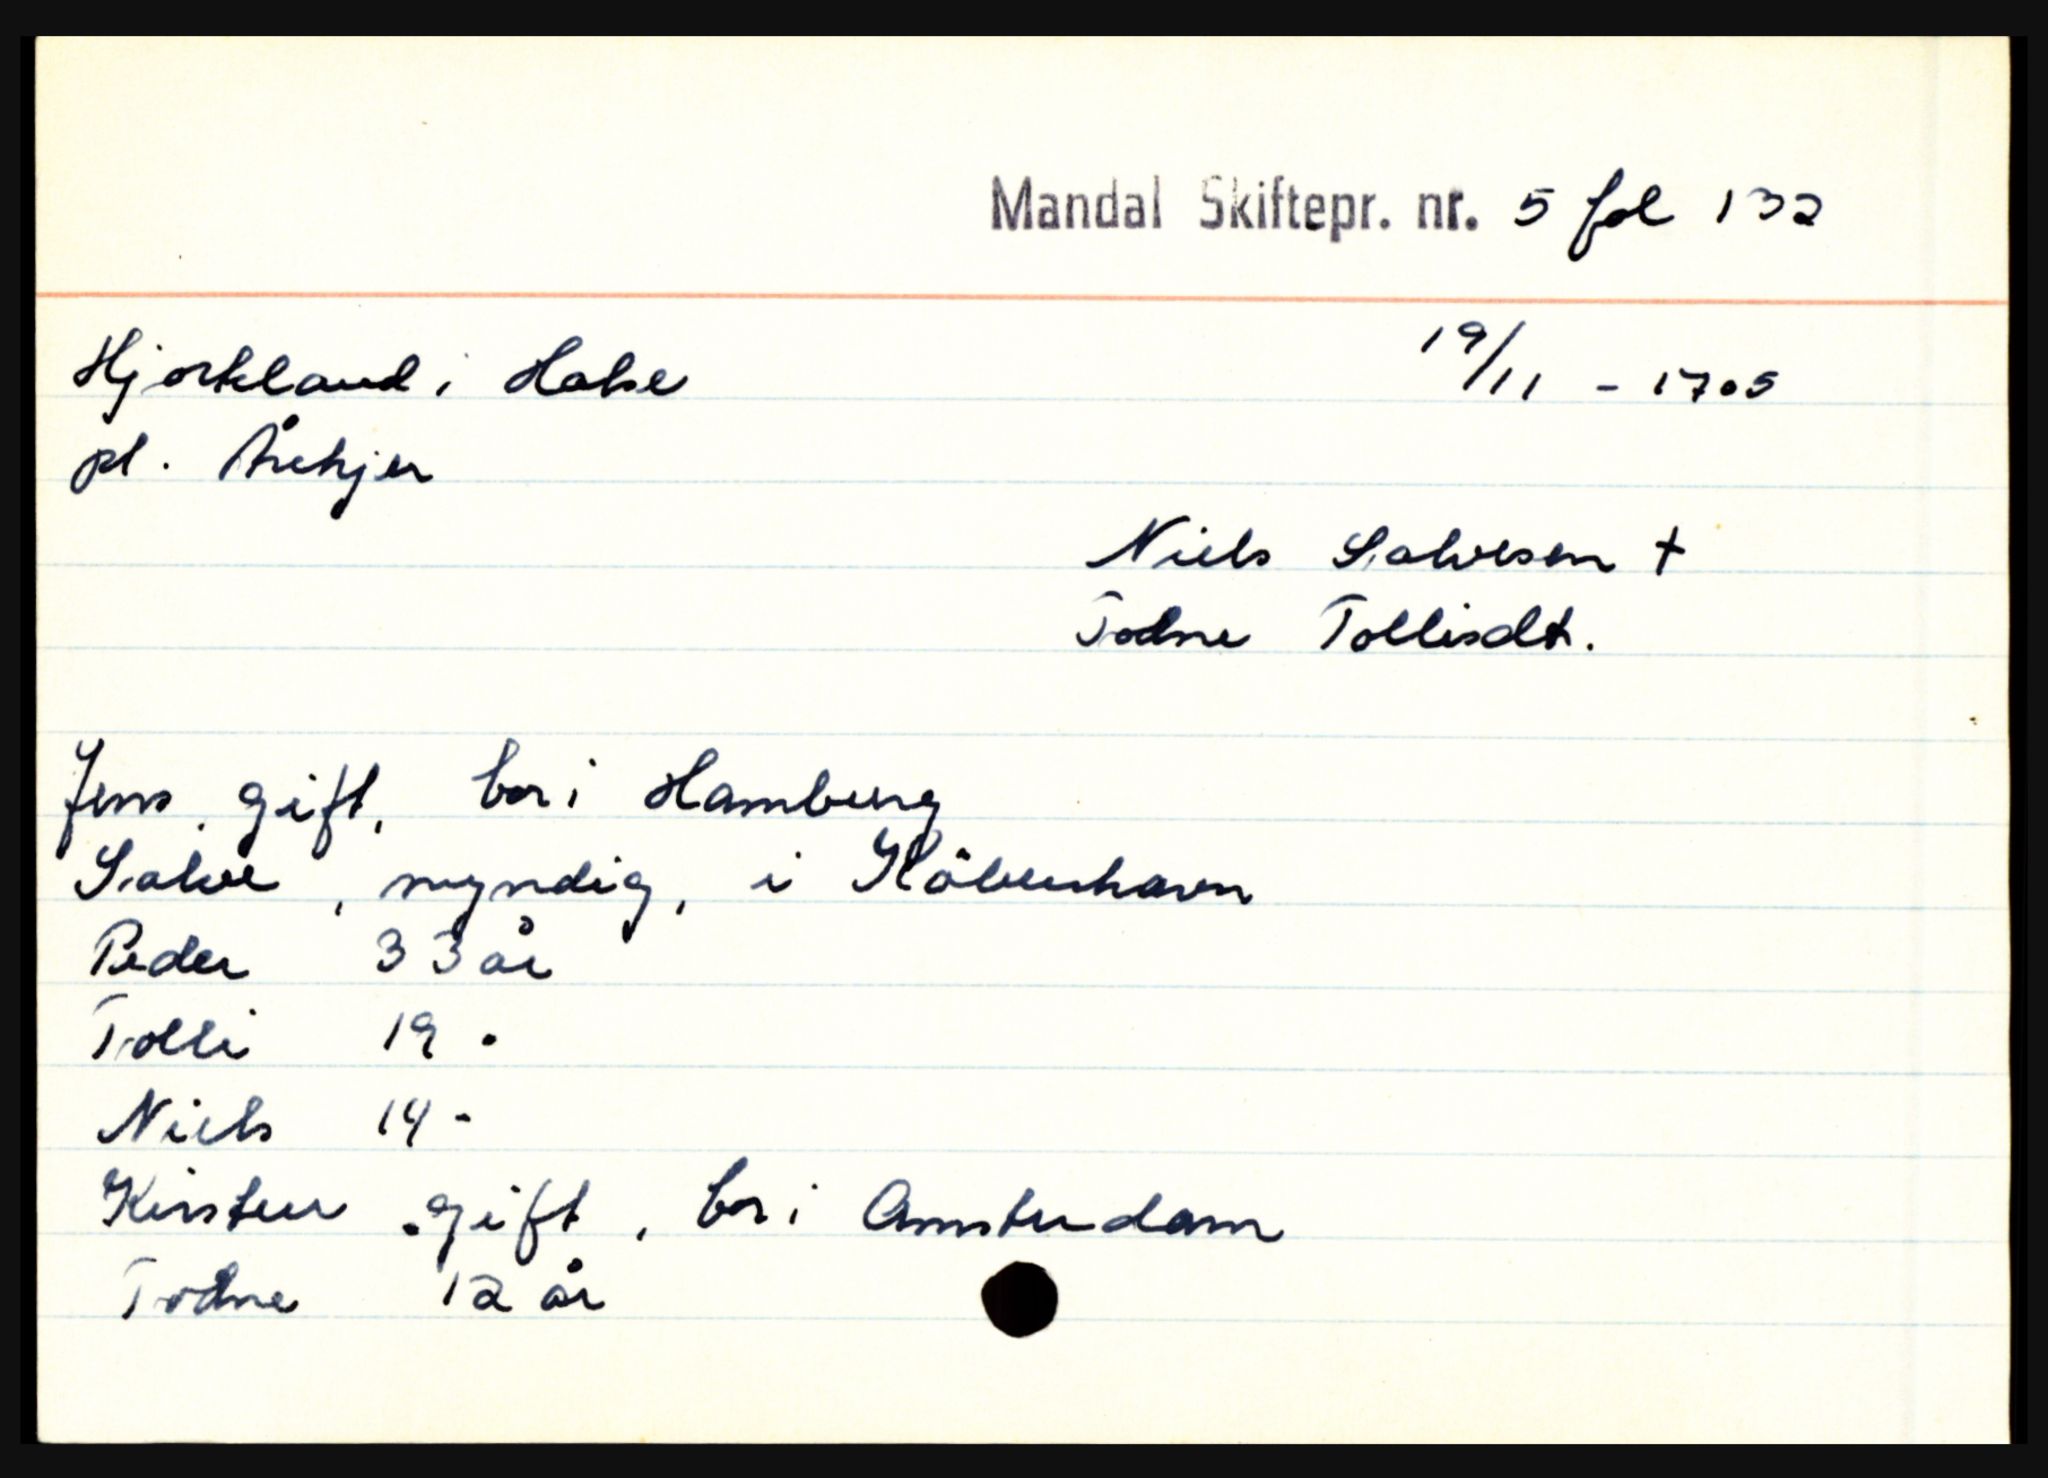 Mandal Skiftepr. nr. 5 fol 132
Hjorteland i Halse 19/11 - 1705
pl. Årekjer
Niels Salvesen +
Todne Tollisdt.
Jens, gift, bor i Hamburg
Salve, myndig, i Köbenhavn
Peder 33 år
Tolli 19 -
Niels 14 -
Kirsten gift, bor i Amsterdam
Todne 12 år